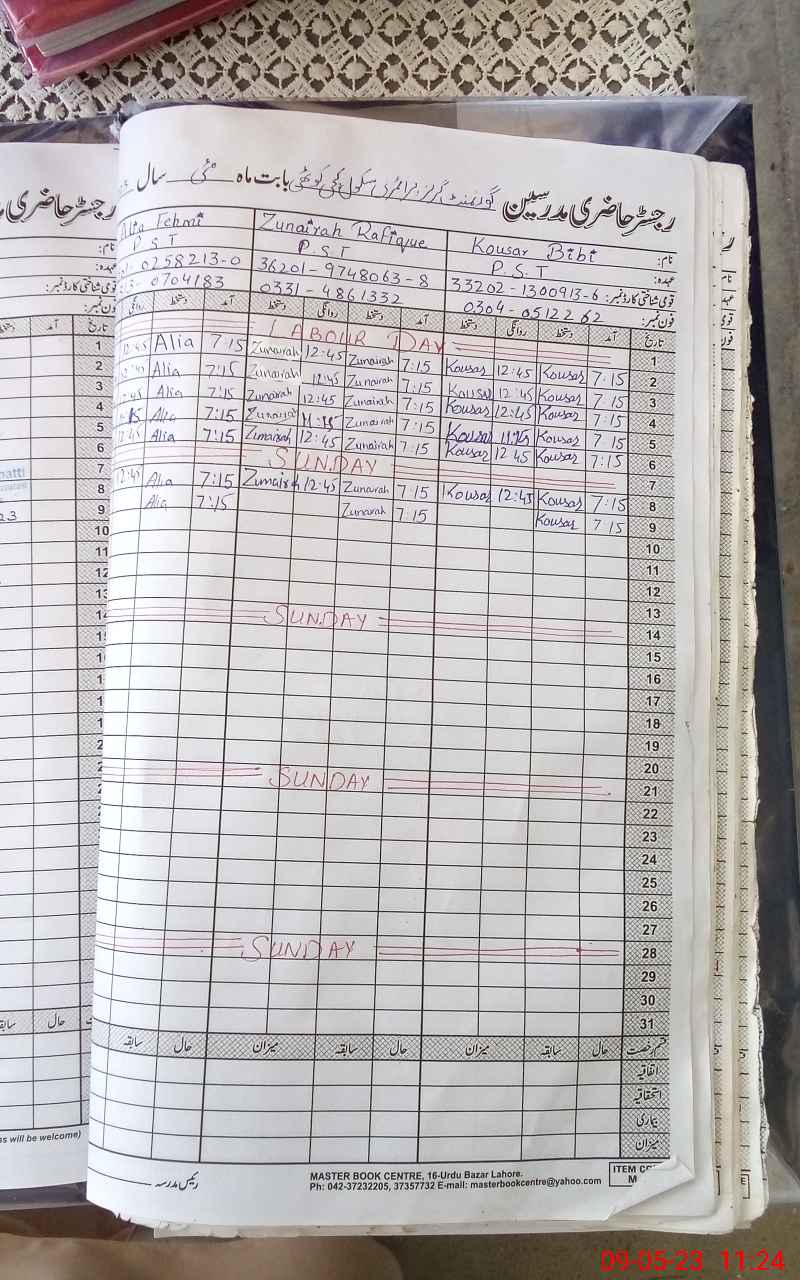 رجسٹر حاضری مدرسین گورنمنٹ گرلز پرائمری سکول کچی کوٹھی بابت ماہ مئی سال
نام: Kousar Bibi Zunairah Rafique Alia Fehmi
عہدہ: P.S.T P.S.T P.S.T
قومی شناختی کارڈ نمبر: 33202-1300913-6 36201-9748063-8 0258213-0
فون نمبر: 0304-0512262 0331-4861332 0704183
تاریخ آمد دستخط روانگی دستخط آمد دستخط روانگی دستخط آمد دستخط روانگی
1 LABOUR DAY
2 7:15 Kousar 12:45 Kousar 7:15 Zunairah 12:45 Zunairah 7:15 Alia 12:45
3 7:15 Kousar 12:45 Kousar 7:15 Zunairah 12:45 Zunairah 7:15 Alia 12:45
4 7:15 Kousar 12:45 Kousar 7:15 Zunairah 12:45 Zunairah 7:15 Alia 12:45
5 7:15 Kousar Kousar 7:15 Zunairah Zunairah 7:15 Alia
6 7:15 Kousar 12:45 Kousar 7:15 Zunairah 12:45 Zunairah 7:15 Alia 12:45
7 SUNDAY
8 7:15 Kousar 12:45 Kousar 7:15 Zunairah 12:45 Zunairah 7:15 Alia 12:45
9 7:15 Kousar 7:15 Zunairah 7:15 Alia
10
11
12
13
14 SUNDAY
15
16
17
18
19
20
21 SUNDAY
22
23
24
25
26
27
28 SUNDAY
29
30
31
قسم رخصت حال سابقہ میزان حال سابقہ میزان حال سابقہ
اتفاقیہ
استحقاقیہ
بیماری
میزان
رئیس مدرسہ
MASTER BOOK CENTRE, 16-Urdu Bazar Lahore.
Ph: 042-37232205, 37357732 E-mail: masterbookcentre@yahoo.com
ITEM
رجسٹر حاضری
نام:
عہدہ:
قومی شناختی کارڈ نمبر:
فون نمبر:
تاریخ آمد
1
2
3
4
5
6
7
8
9
10
11
حال
ss will be welcome)
09-05-23 11:24